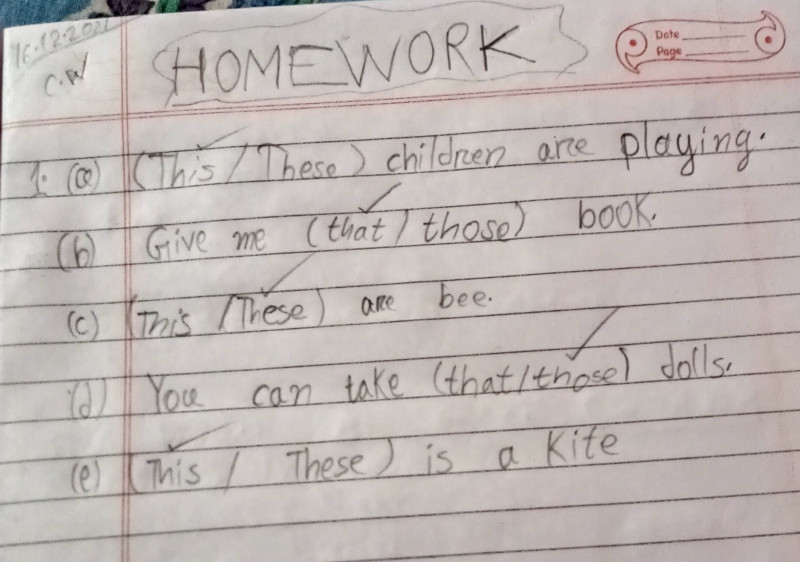 16.12.2021
C.W
HOMEWORK
Date
Page
1. (a) (This / These) children are playing.
(b) Give me (that / those) book.
(c) (This / These) are bee.
(d) You can take (that / those) dolls.
(e) (This / These) is a Kite